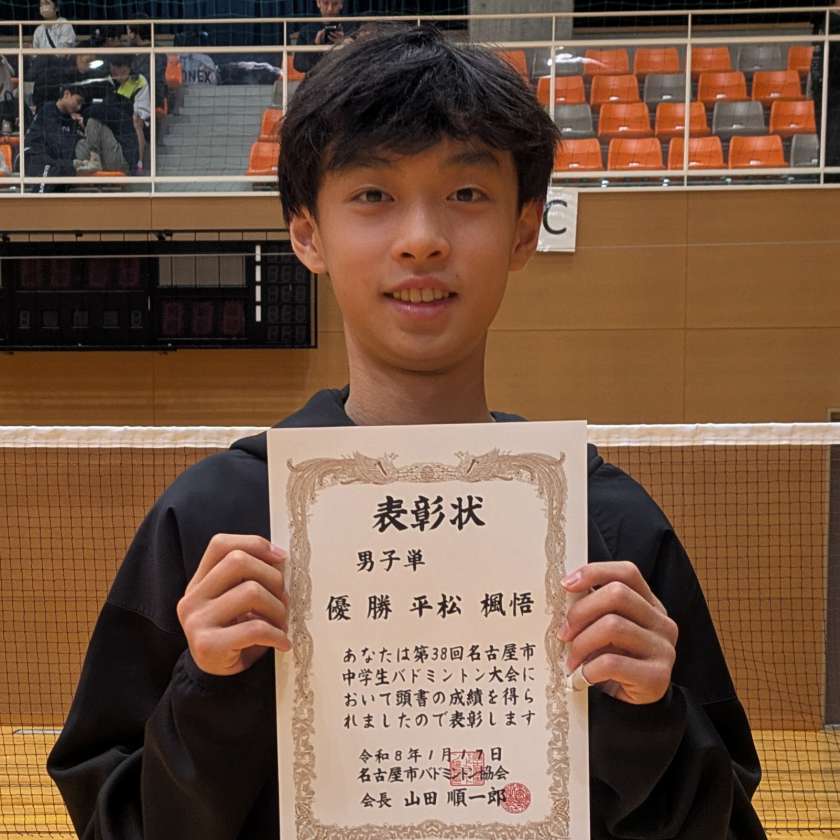 YONEX
C
表彰状
男子単
優勝 平松 楓悟
あなたは第38回名古屋市
中学生バドミントン大会に
おいて頭書の成績を得ら
れましたので表彰します
令和8年1月17日
名古屋市バドミントン協会
会長 山田 順一郎